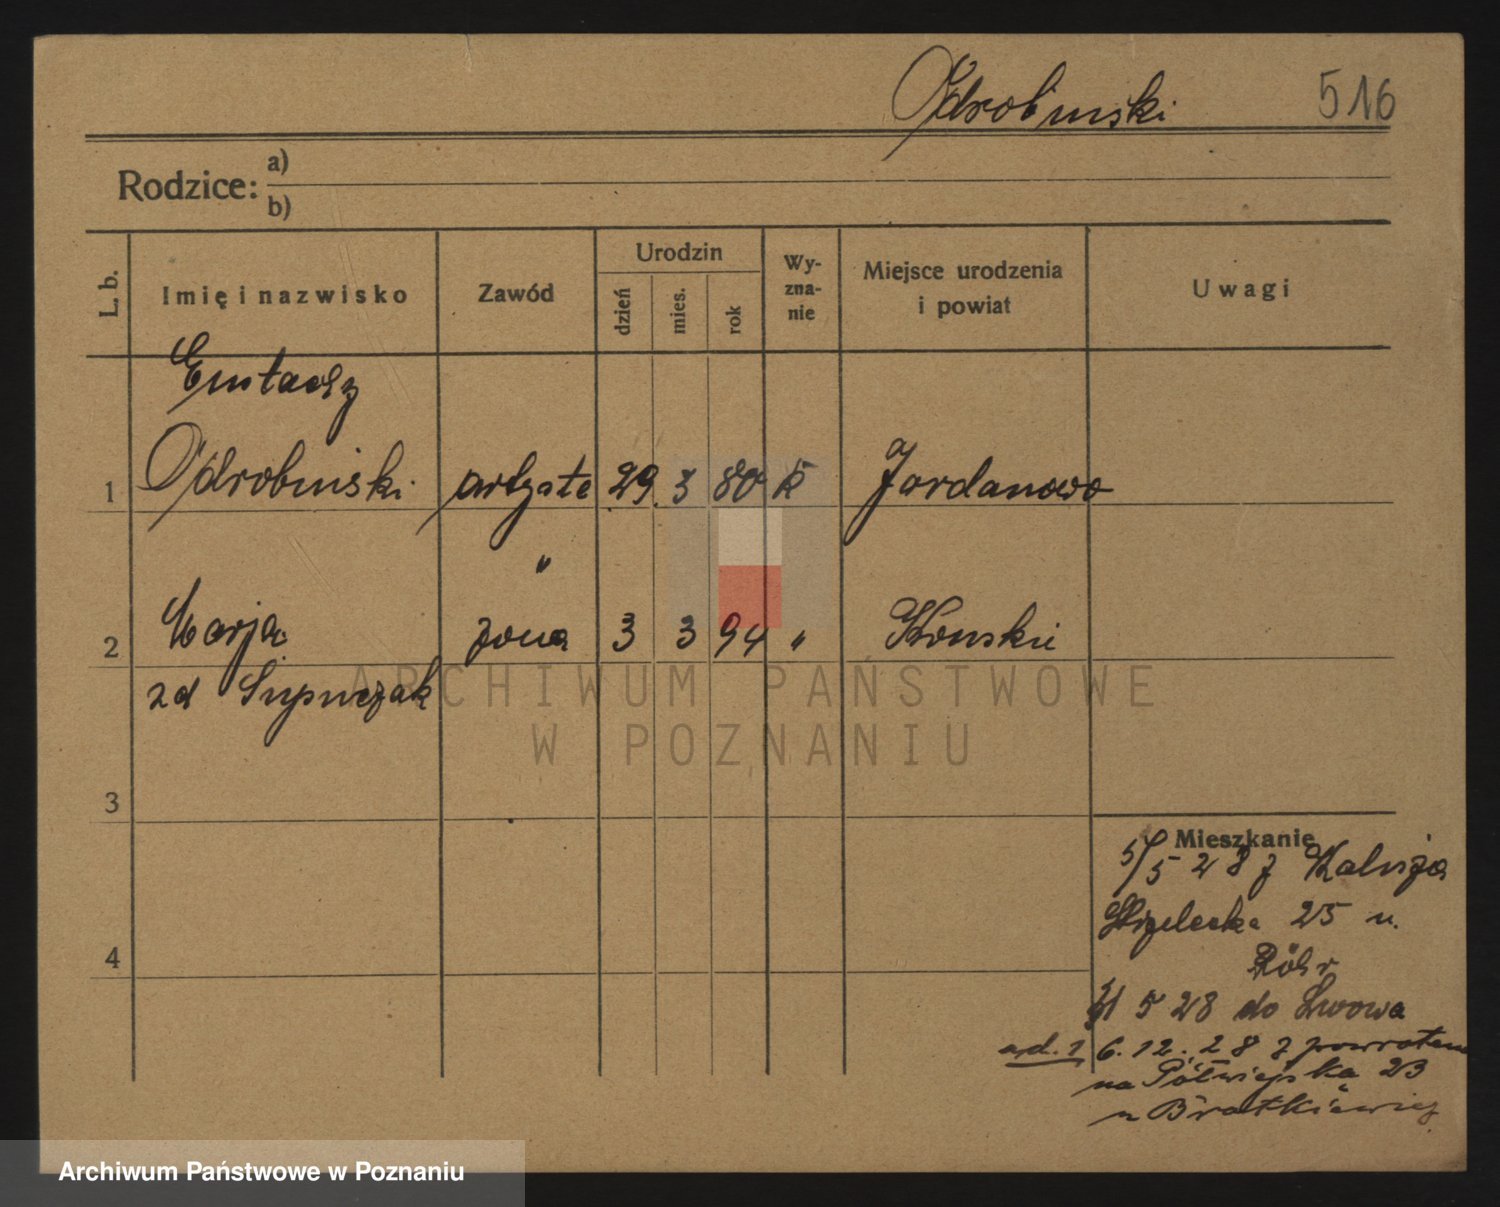 Odrobinski 516
Rodzice: a)
b)
L. b. Imię i nazwisko Zawód Urodzin dzień mies. rok Wy-zna-nie Miejsce urodzenia i powiat Uwagi
Eustachy
1 Odrobinski artysta 29 3 80 k Jordanowo
"
2 Marja żona 3 3 94 " Konskie
zd
3
4
Mieszkanie
5/5 28 z Kalisza
Strzelecka 25 u.
Röhr
5 28 do Lwowa
ad. 1 6. 12. 28 z powrotem
na Półwiejska 23
u Bratkiewicz
ARCHIWUM PAŃSTWOWE
W POZNANIU
Archiwum Państwowe w Poznaniu